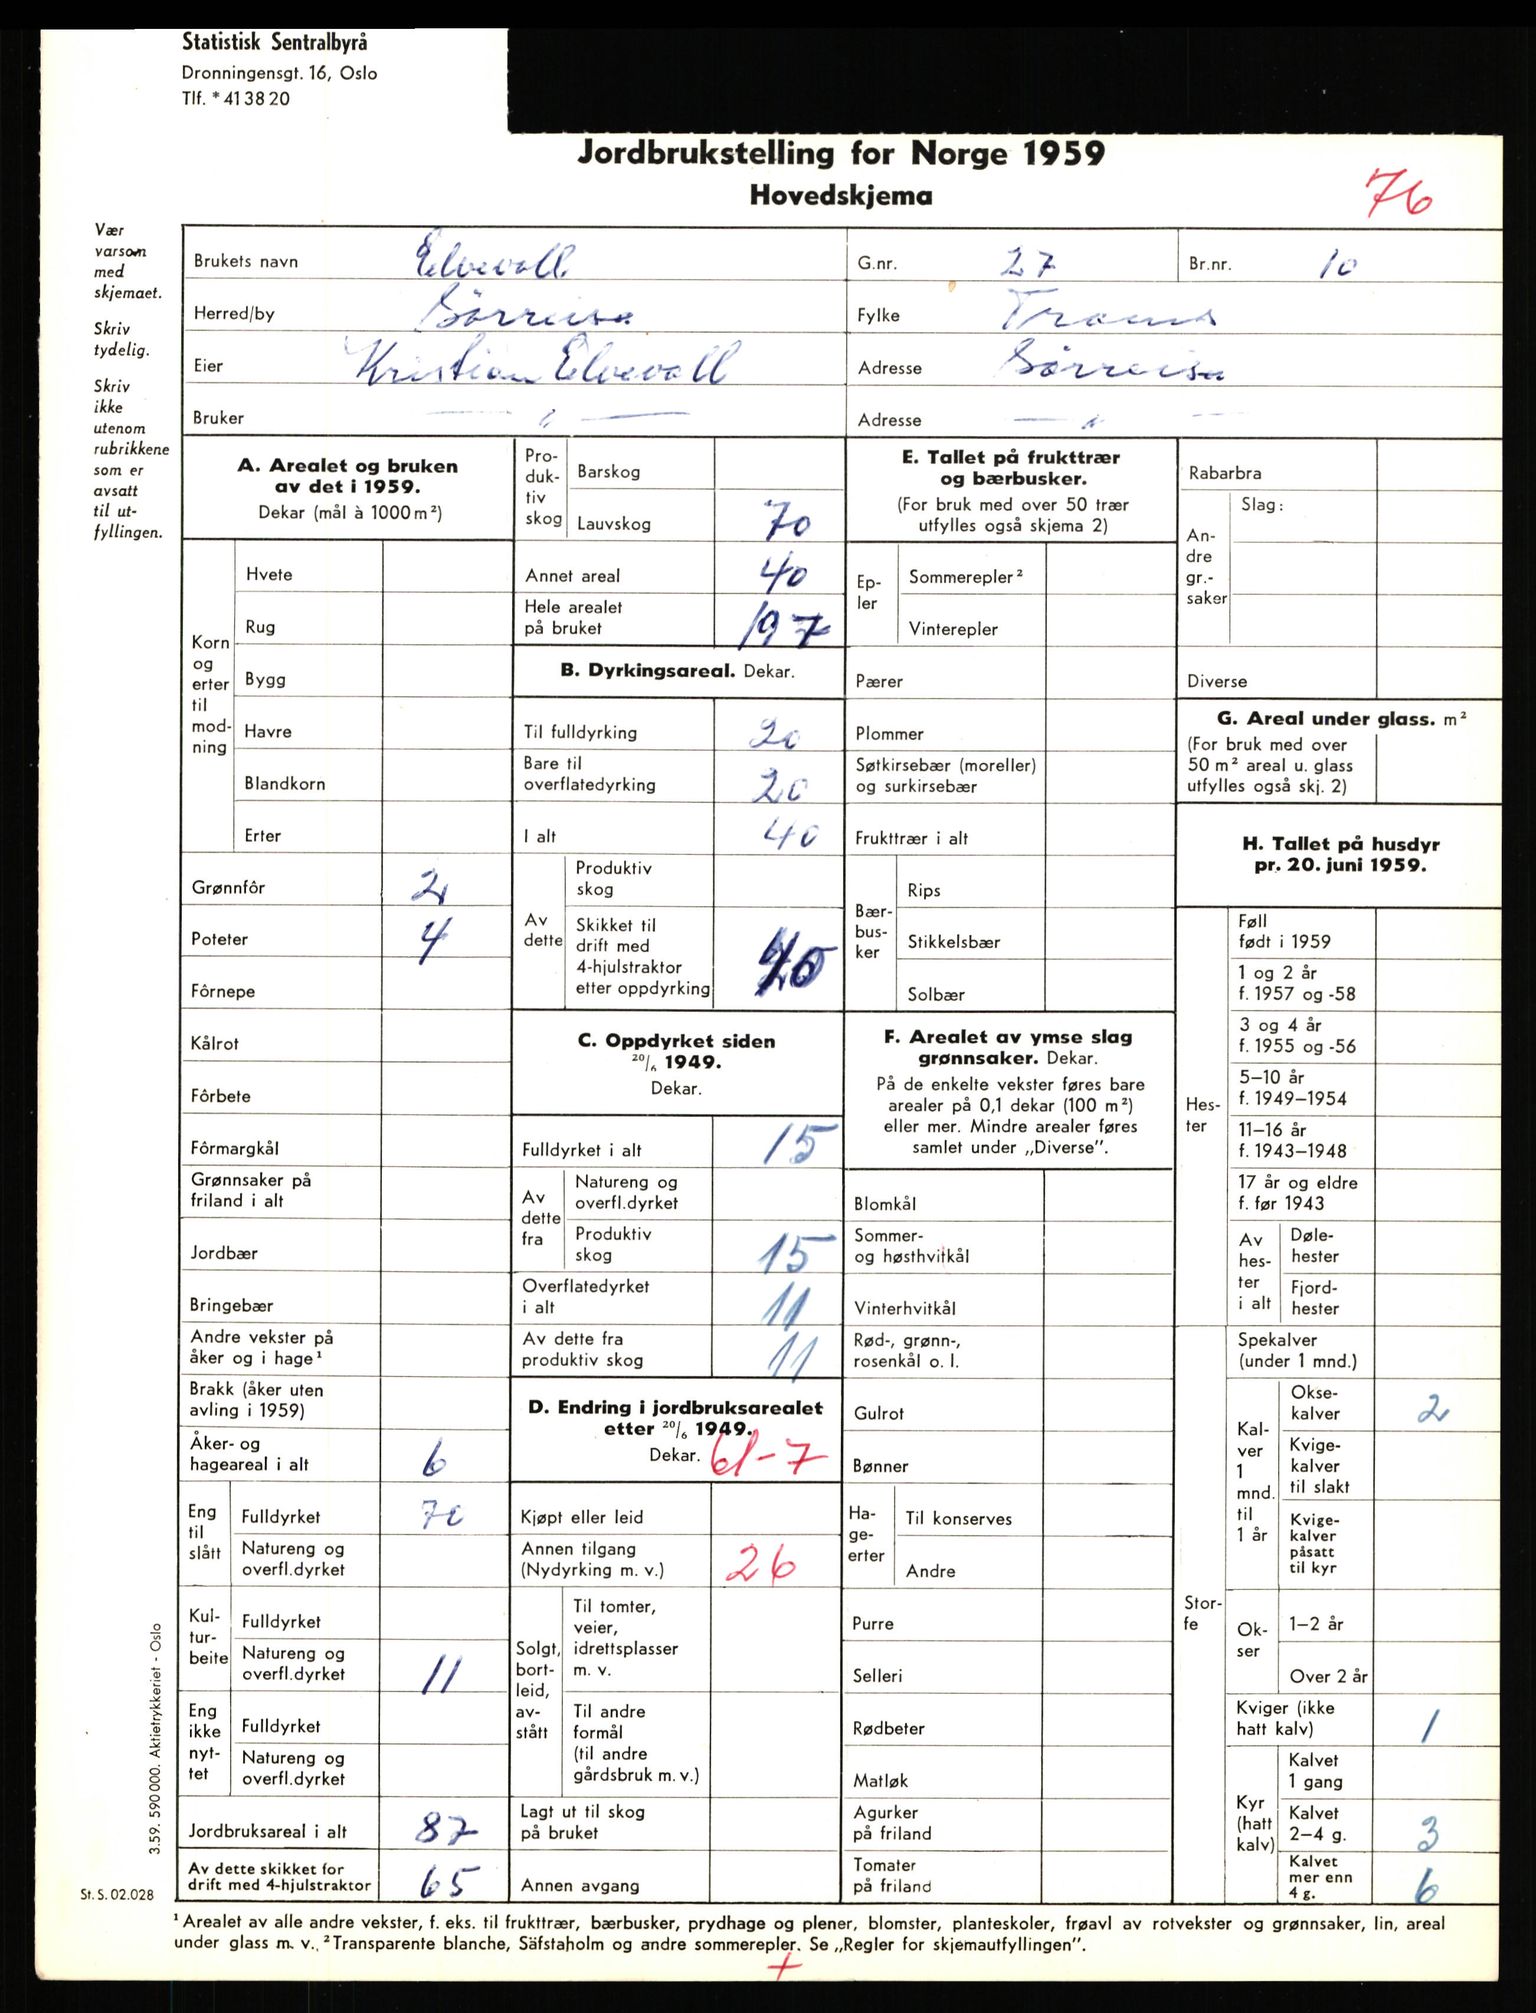 Statistisk Sentralbyrå
Dronningensgt. 16, Oslo
Tlf. * 41 38 20
Jordbrukstelling for Norge 1959
Hovedskjema
76
Vær
varsom
med
skjemaet.
Skriv
tydelig.
Skriv
ikke
utenom
rubrikkene
som er
avsatt
til ut-
fyllingen.
Brukets navn Elvevoll G.nr. 27 Br.nr. 10
Herred/by Sørreisa Fylke Troms
Eier Kristian Elvevoll Adresse Sørreisa
Bruker — " — Adresse — " —
A. Arealet og bruken
av det i 1959.
Dekar (mål à 1000 m²)
Korn
og
erter
til
mod-
ning
Hvete
Rug
Bygg
Havre
Blandkorn
Erter
Grønnfôr 2
Poteter 4
Fôrnepe
Kålrot
Fôrbete
Fôrmargkål
Grønnsaker på
friland i alt
Jordbær
Bringebær
Andre vekster på
åker og i hage¹
Brakk (åker uten
avling i 1959)
Åker- og
hageareal i alt 6
Eng
til
slått
Fulldyrket 70
Natureng og
overfl.dyrket
Kul-
tur-
beite
Fulldyrket
Natureng og
overfl.dyrket 11
Eng
ikke
nyt-
tet
Fulldyrket
Natureng og
overfl.dyrket
Jordbruksareal i alt 87
Av dette skikket for
drift med 4-hjulstraktor 65
Pro-
duk-
tiv
skog
Barskog
Lauvskog 70
Annet areal 40
Hele arealet
på bruket 197
B. Dyrkingsareal. Dekar.
Til fulldyrking 20
Bare til
overflatedyrking 20
I alt 40
Av
dette
Produktiv
skog
Skikket til
drift med
4-hjulstraktor
etter oppdyrking
C. Oppdyrket siden
20/6 1949.
Dekar.
Fulldyrket i alt 15
Av
dette
fra
Natureng og
overfl.dyrket
Produktiv
skog 15
Overflatedyrket
i alt 11
Av dette fra
produktiv skog 11
D. Endring i jordbruksarealet
etter 20/6 1949.
Dekar. 61-7
Kjøpt eller leid
Annen tilgang
(Nydyrking m. v.) 26
Solgt,
bort-
leid,
av-
stått
Til tomter,
veier,
idrettsplasser
m. v.
Til andre
formål
(til andre
gårdsbruk m. v.)
Lagt ut til skog
på bruket
Annen avgang
E. Tallet på frukttrær
og bærbusker.
(For bruk med over 50 trær
utfylles også skjema 2)
Ep-
ler
Sommerepler²
Vinterepler
Pærer
Plommer
Søtkirsebær (moreller)
og surkirsebær
Frukttrær i alt
Bær-
bus-
ker
Rips
Stikkelsbær
Solbær
F. Arealet av ymse slag
grønnsaker. Dekar.
På de enkelte vekster føres bare
arealer på 0,1 dekar (100 m²)
eller mer. Mindre arealer føres
samlet under „Diverse”.
Blomkål
Sommer-
og høsthvitkål
Vinterhvitkål
Rød-, grønn-,
rosenkål o. l.
Gulrot
Bønner
Ha-
ge-
erter
Til konserves
Andre
Purre
Selleri
Rødbeter
Matløk
Agurker
på friland
Tomater
på friland
Rabarbra
An-
dre
gr.-
saker
Slag:
Diverse
G. Areal under glass. m²
(For bruk med over
50 m² areal u. glass
utfylles også skj. 2)
H. Tallet på husdyr
pr. 20. juni 1959.
Hes-
ter
Føll
født i 1959
1 og 2 år
f. 1957 og -58
3 og 4 år
f. 1955 og -56
5–10 år
f. 1949–1954
11–16 år
f. 1943–1948
17 år og eldre
f. før 1943
Av
hes-
ter
i alt
Døle-
hester
Fjord-
hester
Stor-
fe
Spekalver
(under 1 mnd.)
Kal-
ver
1
mnd.
til
1 år
Okse-
kalver 2
Kvige-
kalver
til slakt
Kvige-
kalver
påsatt
til kyr
Ok-
ser
1–2 år
Over 2 år
Kviger (ikke
hatt kalv) 1
Kyr
(hatt
kalv)
Kalvet
1 gang
Kalvet
2–4 g. 3
Kalvet
mer enn
4 g. 6
3.59. 590 000. Aktietrykkeriet - Oslo
St. S. 02.028
¹ Arealet av alle andre vekster, f. eks. til frukttrær, bærbusker, prydhage og plener, blomster, planteskoler, frøavl av rotvekster og grønnsaker, lin, areal
under glass m. v. ² Transparente blanche, Säfstaholm og andre sommerepler. Se „Regler for skjemautfyllingen”.
+